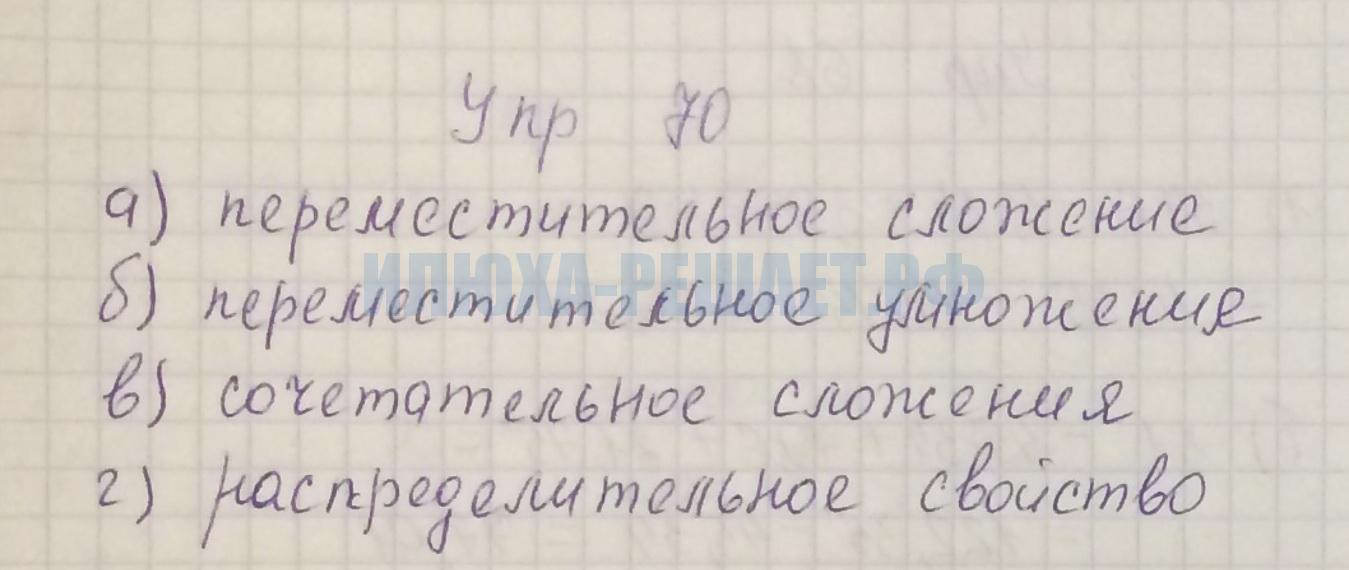 Упр 70
а) переместительное сложение
ИЛЮХА-РЕШАЕТ.РФ
б) переместительное умножение
в) сочетательное сложения
г) распределительное свойство